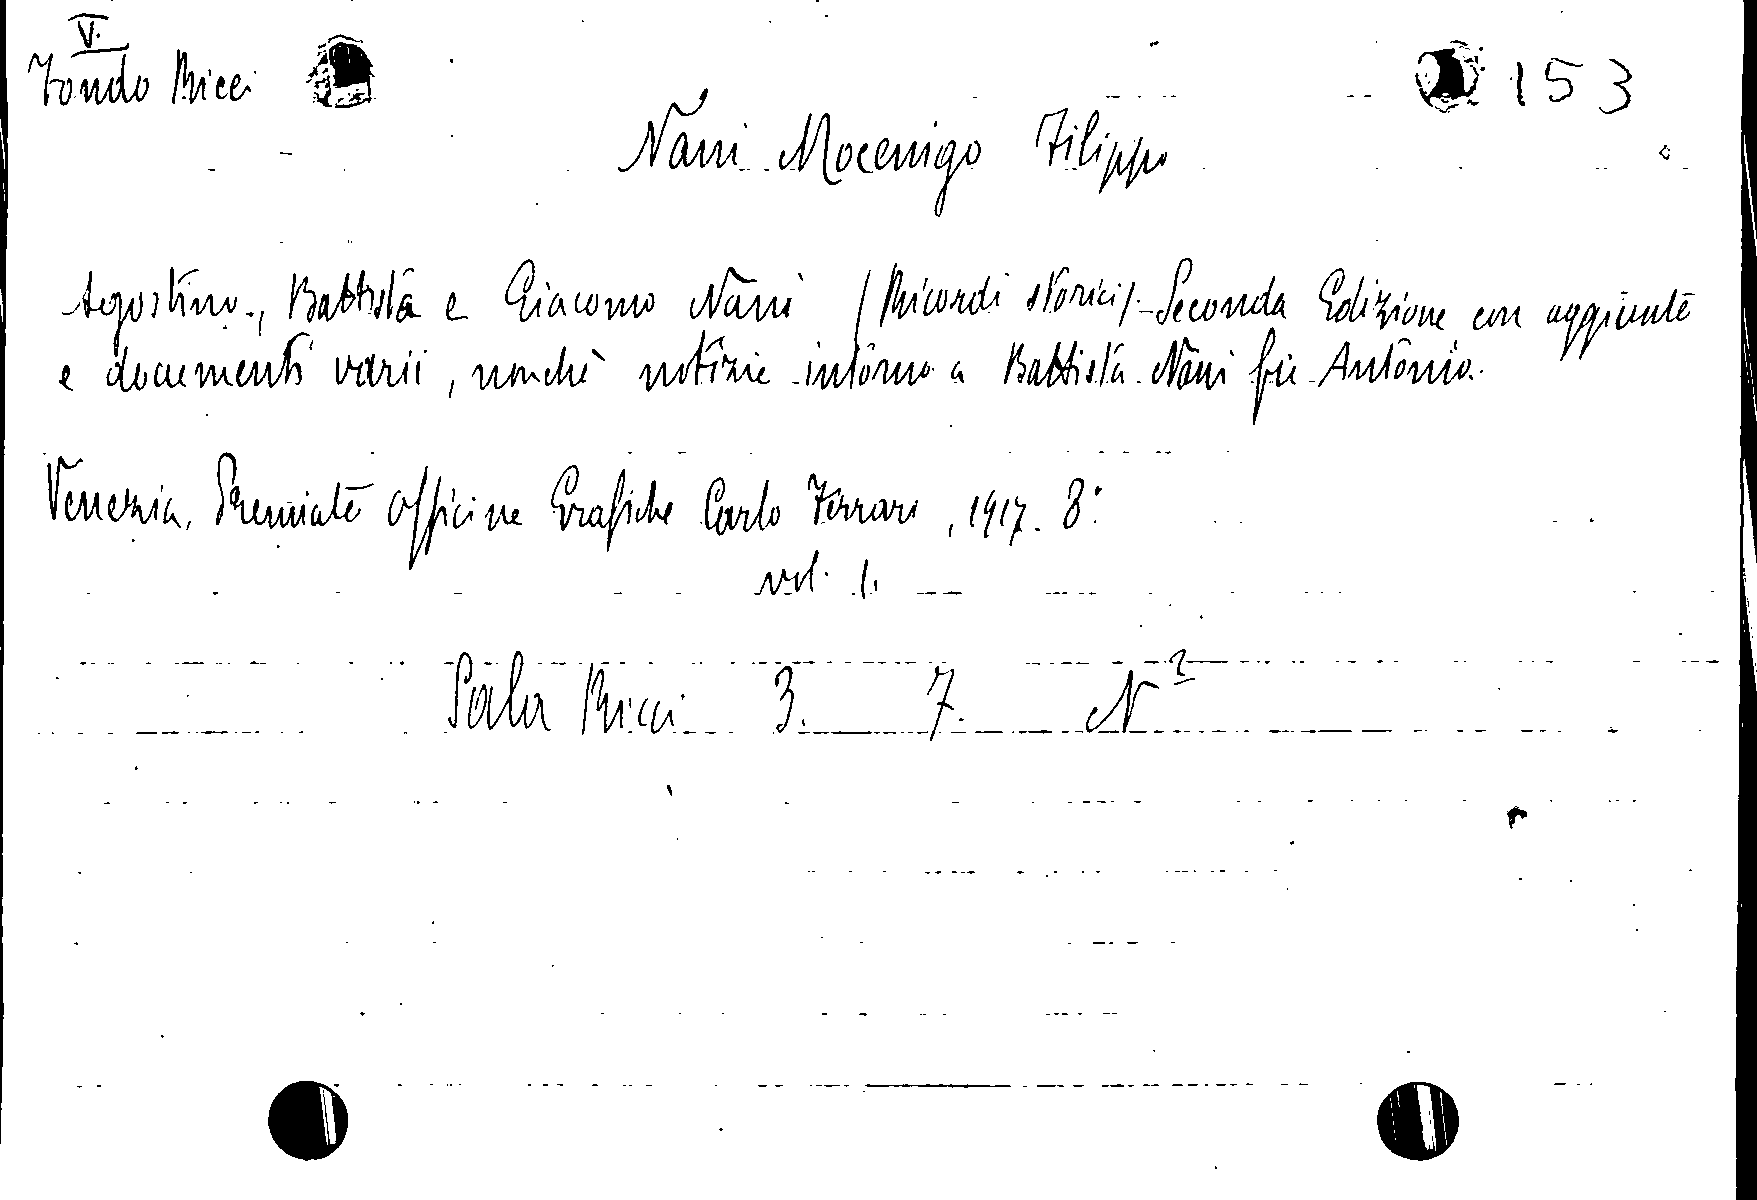 V.
Fondo Ricci
153
Nani Mocenigo Filippo
Agostino, Battista e Giacomo Nani (Ricordi storici) - Seconda Edizione con aggiunte
e documenti varii, nonchè notizie intorno a Battista Nani fu Antonio.
Venezia, Premiate Officine Grafiche Carlo Ferrari, 1917. 8°.
vol. 1.
Sala Ricci 3. 7. N 2